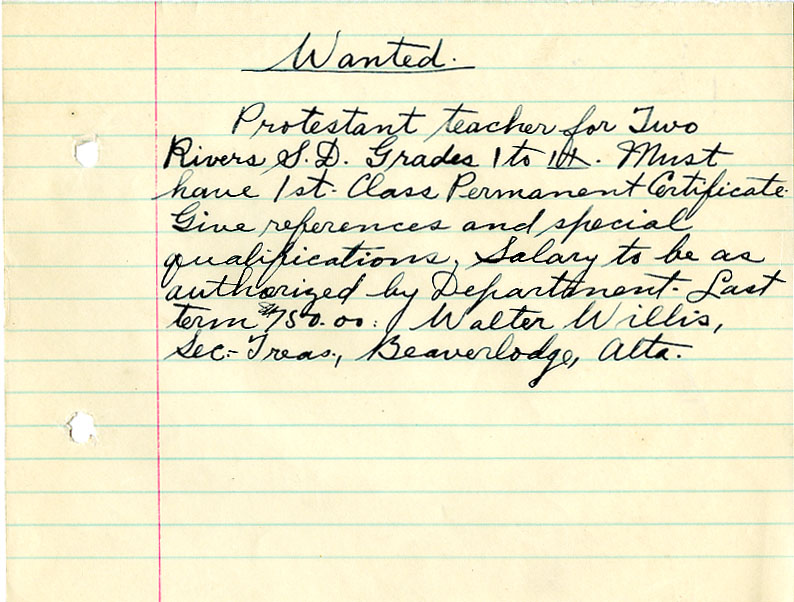 Wanted.
Protestant teacher for Two
Rivers S.D. Grades 1 to Must
have 1st. Class Permanent Certificate.
Give references and special
qualifications. Salary to be as
authorized by Department. Last
term $750.00: Walter Willis,
Sec-Treas., Beaverlodge, Alta.